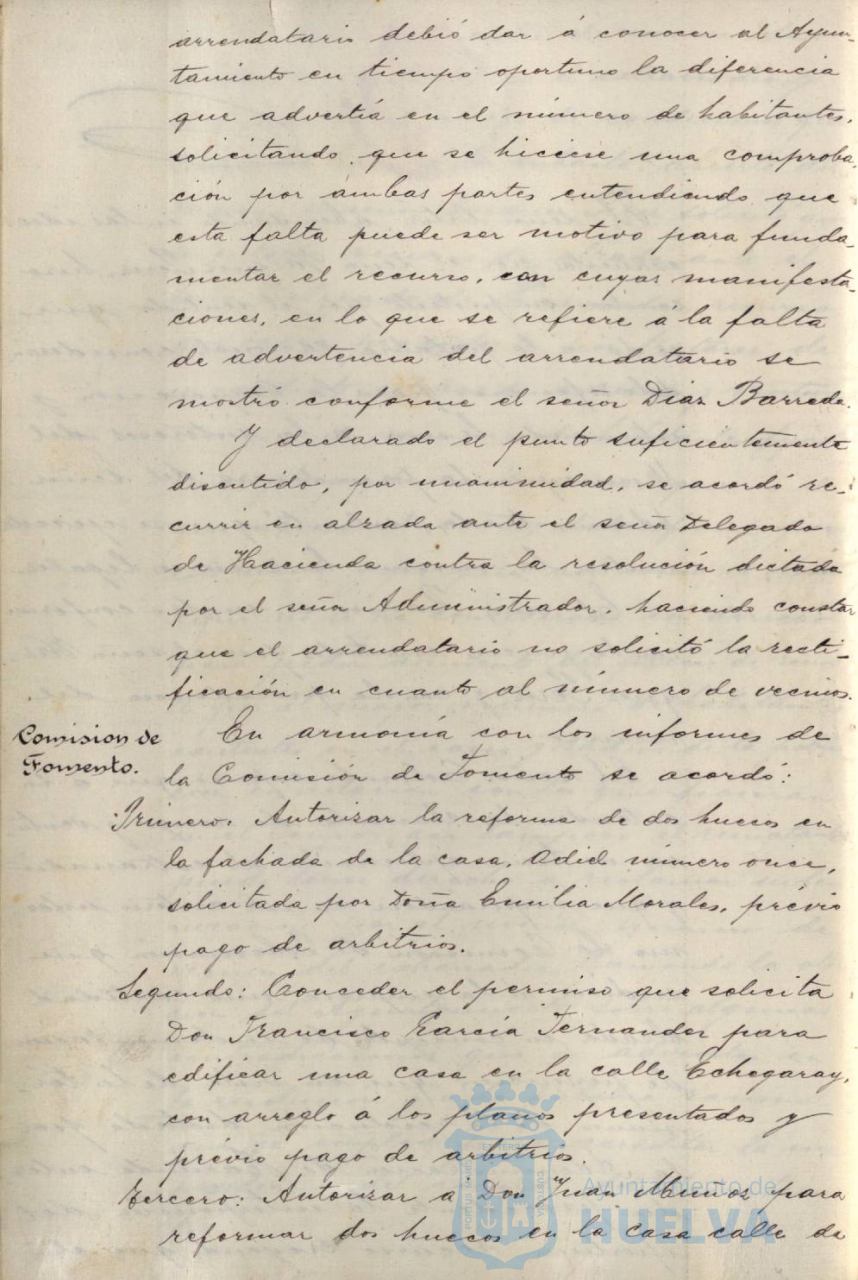 arrendatario debió dar á conocer al Ayun-
tamiento en tiempo oportuno la diferencia
que advertia en el número de habitantes,
solicitando, que se hiciese una comproba-
ción por ámbas partes entendiendo que
esta falta puede ser motivo para funda-
mentar el recurso, con cuyas manifesta-
ciones, en lo que se refiere á la falta
de advertencia del arrendatario se
mostró conforme el señor Diaz Barreda.
Y declarado el punto suficientemente
discutido, por unanimidad, se acordó re-
currir en alzada ante el señor Delegado
de Hacienda contra la resolución dictada
por el señor Administrador, haciendo constar
que el arrendatario no solicitó la recti-
ficación en cuanto al número de vecinos.
Comision de
Fomento.
En armonía con los informes de
la Comisión de Fomento se acordó:
Primero: Autorizar la reforma de dos huecos en
la fachada de la casa, Odiel número once,
solicitada por Doña Emilia Morales, prévio
pago de arbitrios.
Segundo: Conceder el permiso que solicita
Don Francisco García Fernandez para
edificar una casa en la calle Echegaray,
con arreglo á los planos presentados y
prévio pago de arbitrios.
Tercero: Autorizar a Don Juan Muñoz para
reformar dos huecos en la casa calle de
Ayuntamiento de
HUELVA